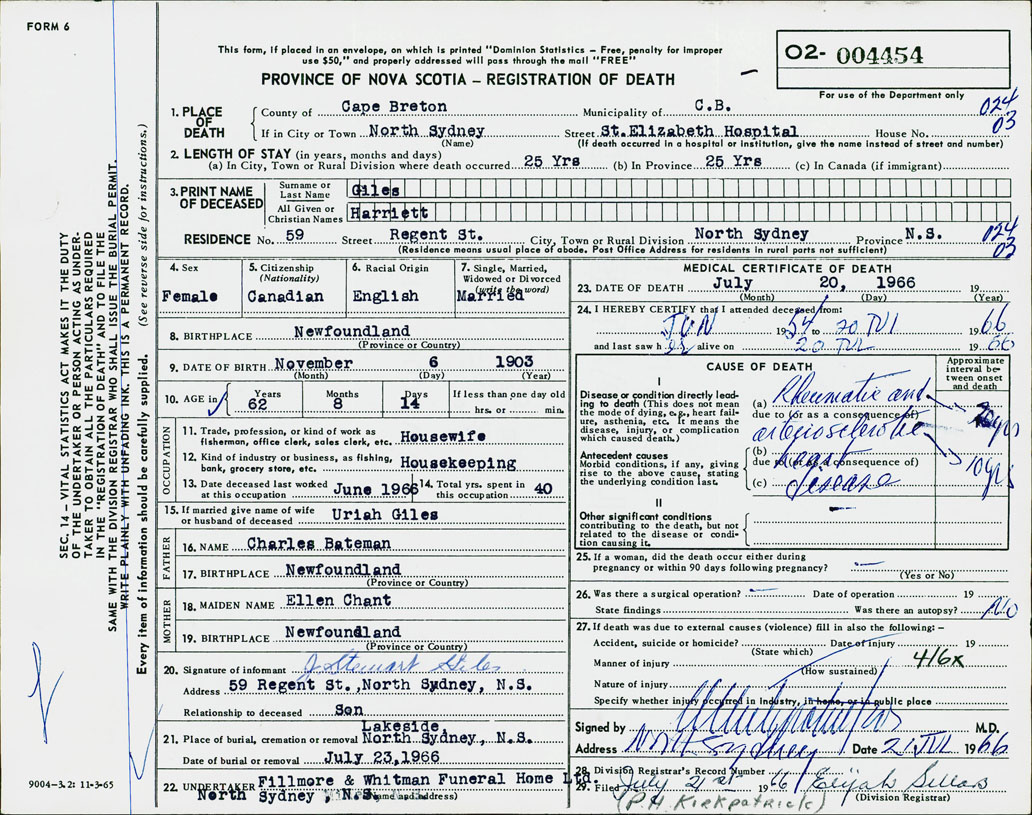 FORM 6
This form, if placed in an envelope, on which is printed "Dominion Statistics – Free, penalty for improper
use $50," and properly addressed will pass through the mail "FREE"
PROVINCE OF NOVA SCOTIA – REGISTRATION OF DEATH
O2- 004454
For use of the Department only
024
03
1. PLACE OF DEATH
County of Cape Breton Municipality of C.B.
If in City or Town North Sydney Street St.Elizabeth Hospital House No.
(Name) (If death occurred in a hospital or institution, give the name instead of street and number)
2. LENGTH OF STAY (in years, months and days)
(a) In City, Town or Rural Division where death occurred 25 Yrs (b) In Province 25 Yrs (c) In Canada (if immigrant)
3. PRINT NAME OF DECEASED
Surname or Last Name Giles
All Given or Christian Names Harriett
RESIDENCE No. 59 Street Regent St. City, Town or Rural Division North Sydney Province N.S.
(Residence means usual place of abode. Post Office Address for residents in rural parts not sufficient)
024
03
4. Sex
Female
5. Citizenship
(Nationality)
Canadian
6. Racial Origin
English
7. Single, Married,
Widowed or Divorced
(write the word)
Married
8. BIRTHPLACE Newfoundland
(Province or Country)
9. DATE OF BIRTH November 6 1903
(Month) (Day) (Year)
10. AGE in
Years 62
Months 8
Days 14
If less than one day old
hrs. or min.
OCCUPATION
11. Trade, profession, or kind of work as
fisherman, office clerk, sales clerk, etc. Housewife
12. Kind of industry or business, as fishing,
bank, grocery store, etc. Housekeeping
13. Date deceased last worked
at this occupation June 1966
14. Total yrs. spent in
this occupation 40
15. If married give name of wife
or husband of deceased Uriah Giles
FATHER
16. NAME Charles Bateman
17. BIRTHPLACE Newfoundland
(Province or Country)
MOTHER
18. MAIDEN NAME Ellen Chant
19. BIRTHPLACE Newfoundland
(Province or Country)
20. Signature of informant J Stewart Giles
Address 59 Regent St.,North Sydney, N.S.
Relationship to deceased Son
Lakeside
21. Place of burial, cremation or removal North Sydney, N.S.
Date of burial or removal July 23,1966
22. UNDERTAKER Fillmore & Whitman Funeral Home Ltd.
North Sydney , N.S.
(Name and address)
MEDICAL CERTIFICATE OF DEATH
23. DATE OF DEATH July 20, 1966 19
(Month) (Day) (Year)
24. I HEREBY CERTIFY that I attended deceased from:
JUN 1954 to 20 JUL 1966
and last saw h er alive on 20 JUL 1966
CAUSE OF DEATH
Approximate
interval be-
tween onset
and death
I
Disease or condition directly lead-
ing to death (This does not mean
the mode of dying, e.g., heart fail-
ure, asthenia, etc. It means the
disease, injury, or complication
which caused death.)
(a) Rheumatic and
due to (or as a consequence of)
arteriosclerotic
Antecedent causes
Morbid conditions, if any, giving
rise to the above cause, stating
the underlying condition last.
(b) heart
due to (or as a consequence of)
(c) disease
10 yrs
II
Other significant conditions
contributing to the death, but not
related to the disease or condi-
tion causing it.
25. If a woman, did the death occur either during
pregnancy or within 90 days following pregnancy?
(Yes or No)
26. Was there a surgical operation? Date of operation 19
State findings Was there an autopsy? No
27. If death was due to external causes (violence) fill in also the following: –
Accident, suicide or homicide? Date of injury 19
(State which)
Manner of injury 416x
(How sustained)
Nature of injury
Specify whether injury occurred in industry, in home, or in public place
Signed by M.D.
Address North Sydney Date 21 JUL 1966
28. Division Registrar's Record Number
29. Filed July 21st 1966 Elijah Sellars
(Division Registrar)
(P.H. Kirkpatrick)
SEC. 14 – VITAL STATISTICS ACT MAKES IT THE DUTY
OF THE UNDERTAKER OR PERSON ACTING AS UNDER-
TAKER TO OBTAIN ALL THE PARTICULARS REQUIRED
IN THE "REGISTRATION OF DEATH" AND TO FILE THE
SAME WITH THE DIVISION REGISTRAR WHO SHALL ISSUE THE BURIAL PERMIT.
WRITE PLAINLY WITH UNFADING INK. THIS IS A PERMANENT RECORD.
Every item of information should be carefully supplied. (See reverse side for instructions.)
9004–3.2: 11-3-65